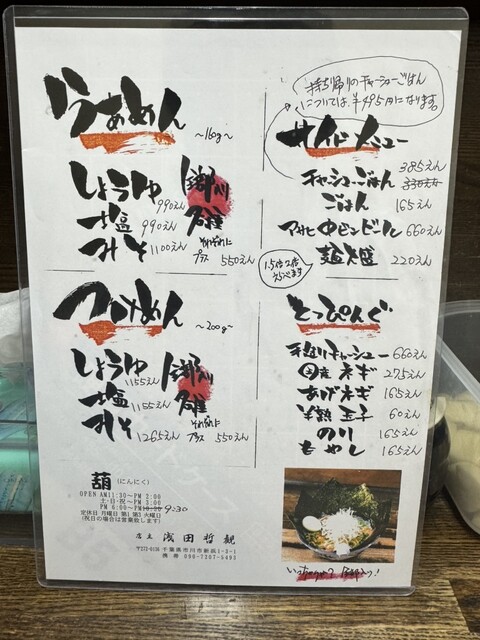 らぁめん
〜160g〜
しょうゆ 990えん
塩 990えん
みそ 1100えん
それぞれに
プラス 550えん
つけめん
〜200g〜
しょうゆ 1155えん
塩 1155えん
みそ 1265えん
それぞれに
プラス 550えん
持ち帰りのチャーシューごはん
については、¥495円になります。
サイドメニュー
チャーシューごはん 385えん 330えん
ごはん 165えん
アサヒ中ビンビール 660えん
麺大盛 220えん
1.5倍 2倍
えらべます
とっぴんぐ
手造りチャーシュー 660えん
国産ネギ 275えん
あげネギ 165えん
半熟玉子 60えん
のり 165えん
もやし 165えん
葫 (にんにく)
OPEN AM11:30〜PM 2:00
土・日・祝〜PM 3:00
PM 6:00〜PM10:30 9:30
定休日 月曜日 第1 第3 火曜日
(祝日の場合は営業致します)
店主 浅田哲観
千葉県市川市新浜1-3-1
携帯 090-7207-5493